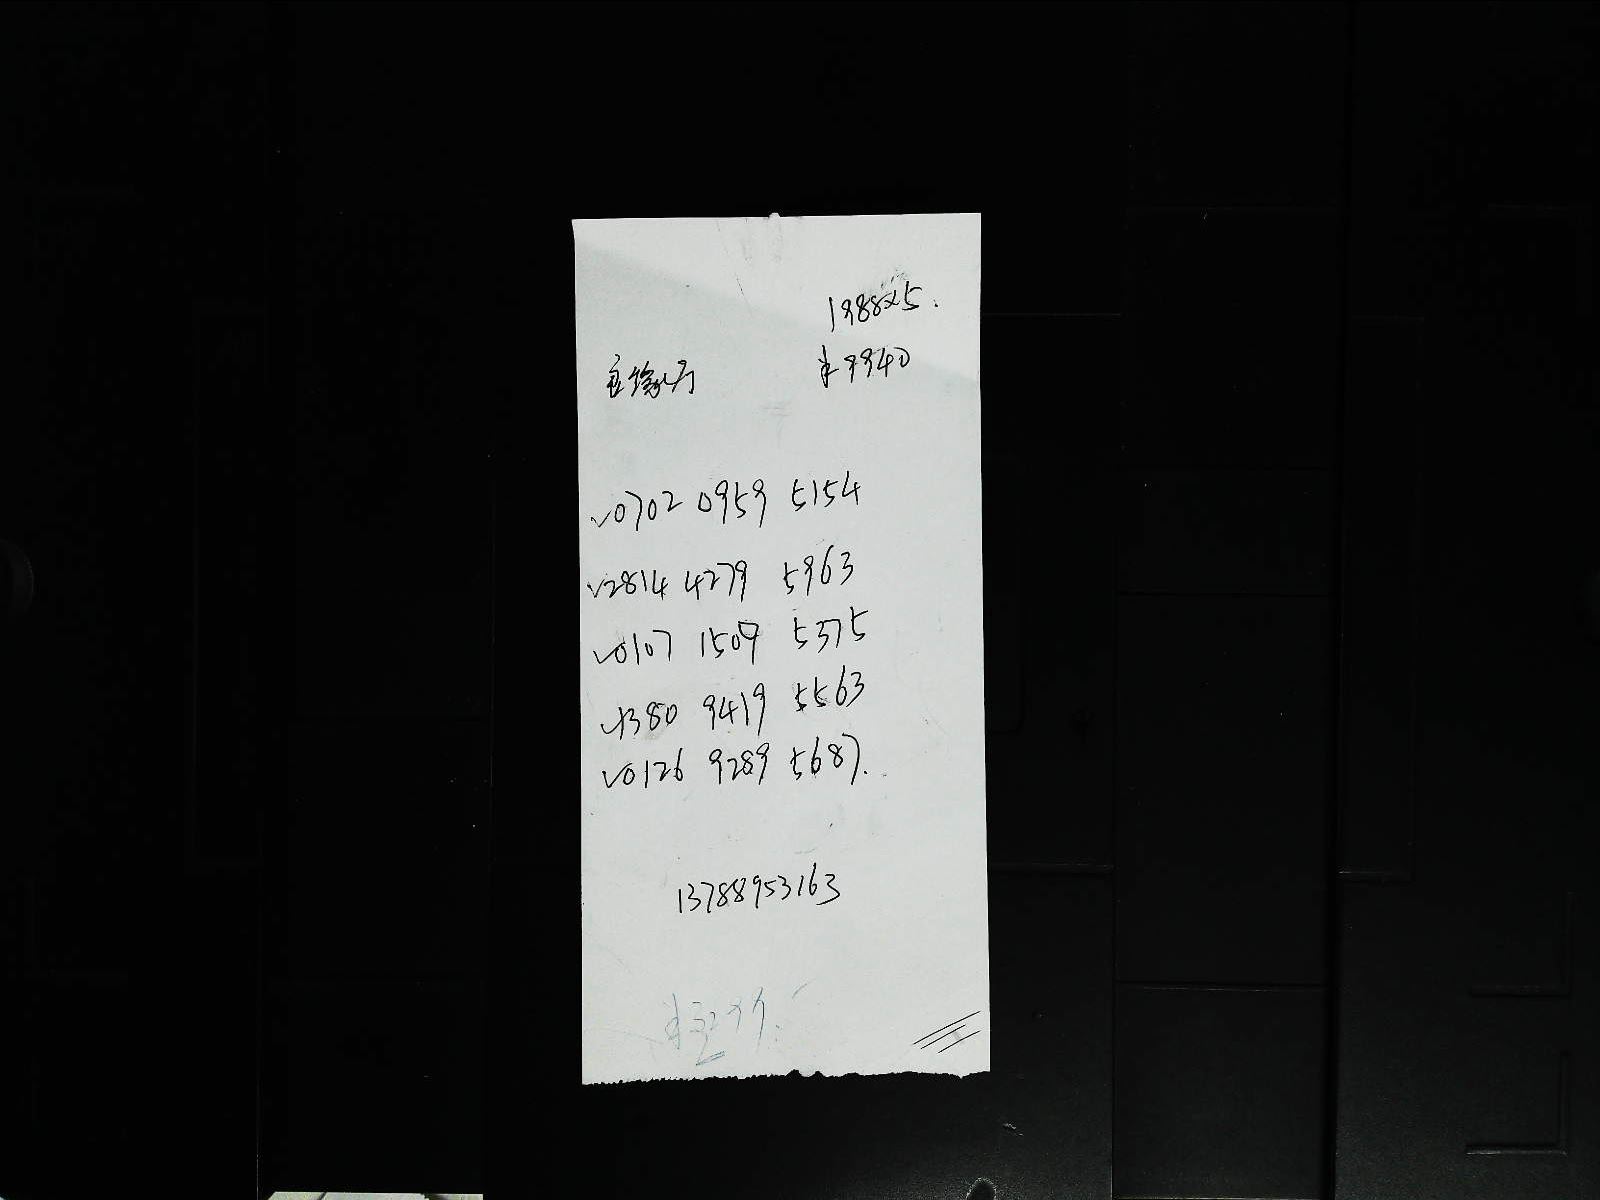 1988x5.
¥9940
✓0702 0959 5154
✓2814 4279 5963
✓0107 1509 5375
✓1380 9419 5563
✓0126 9289 5687.
13788953163